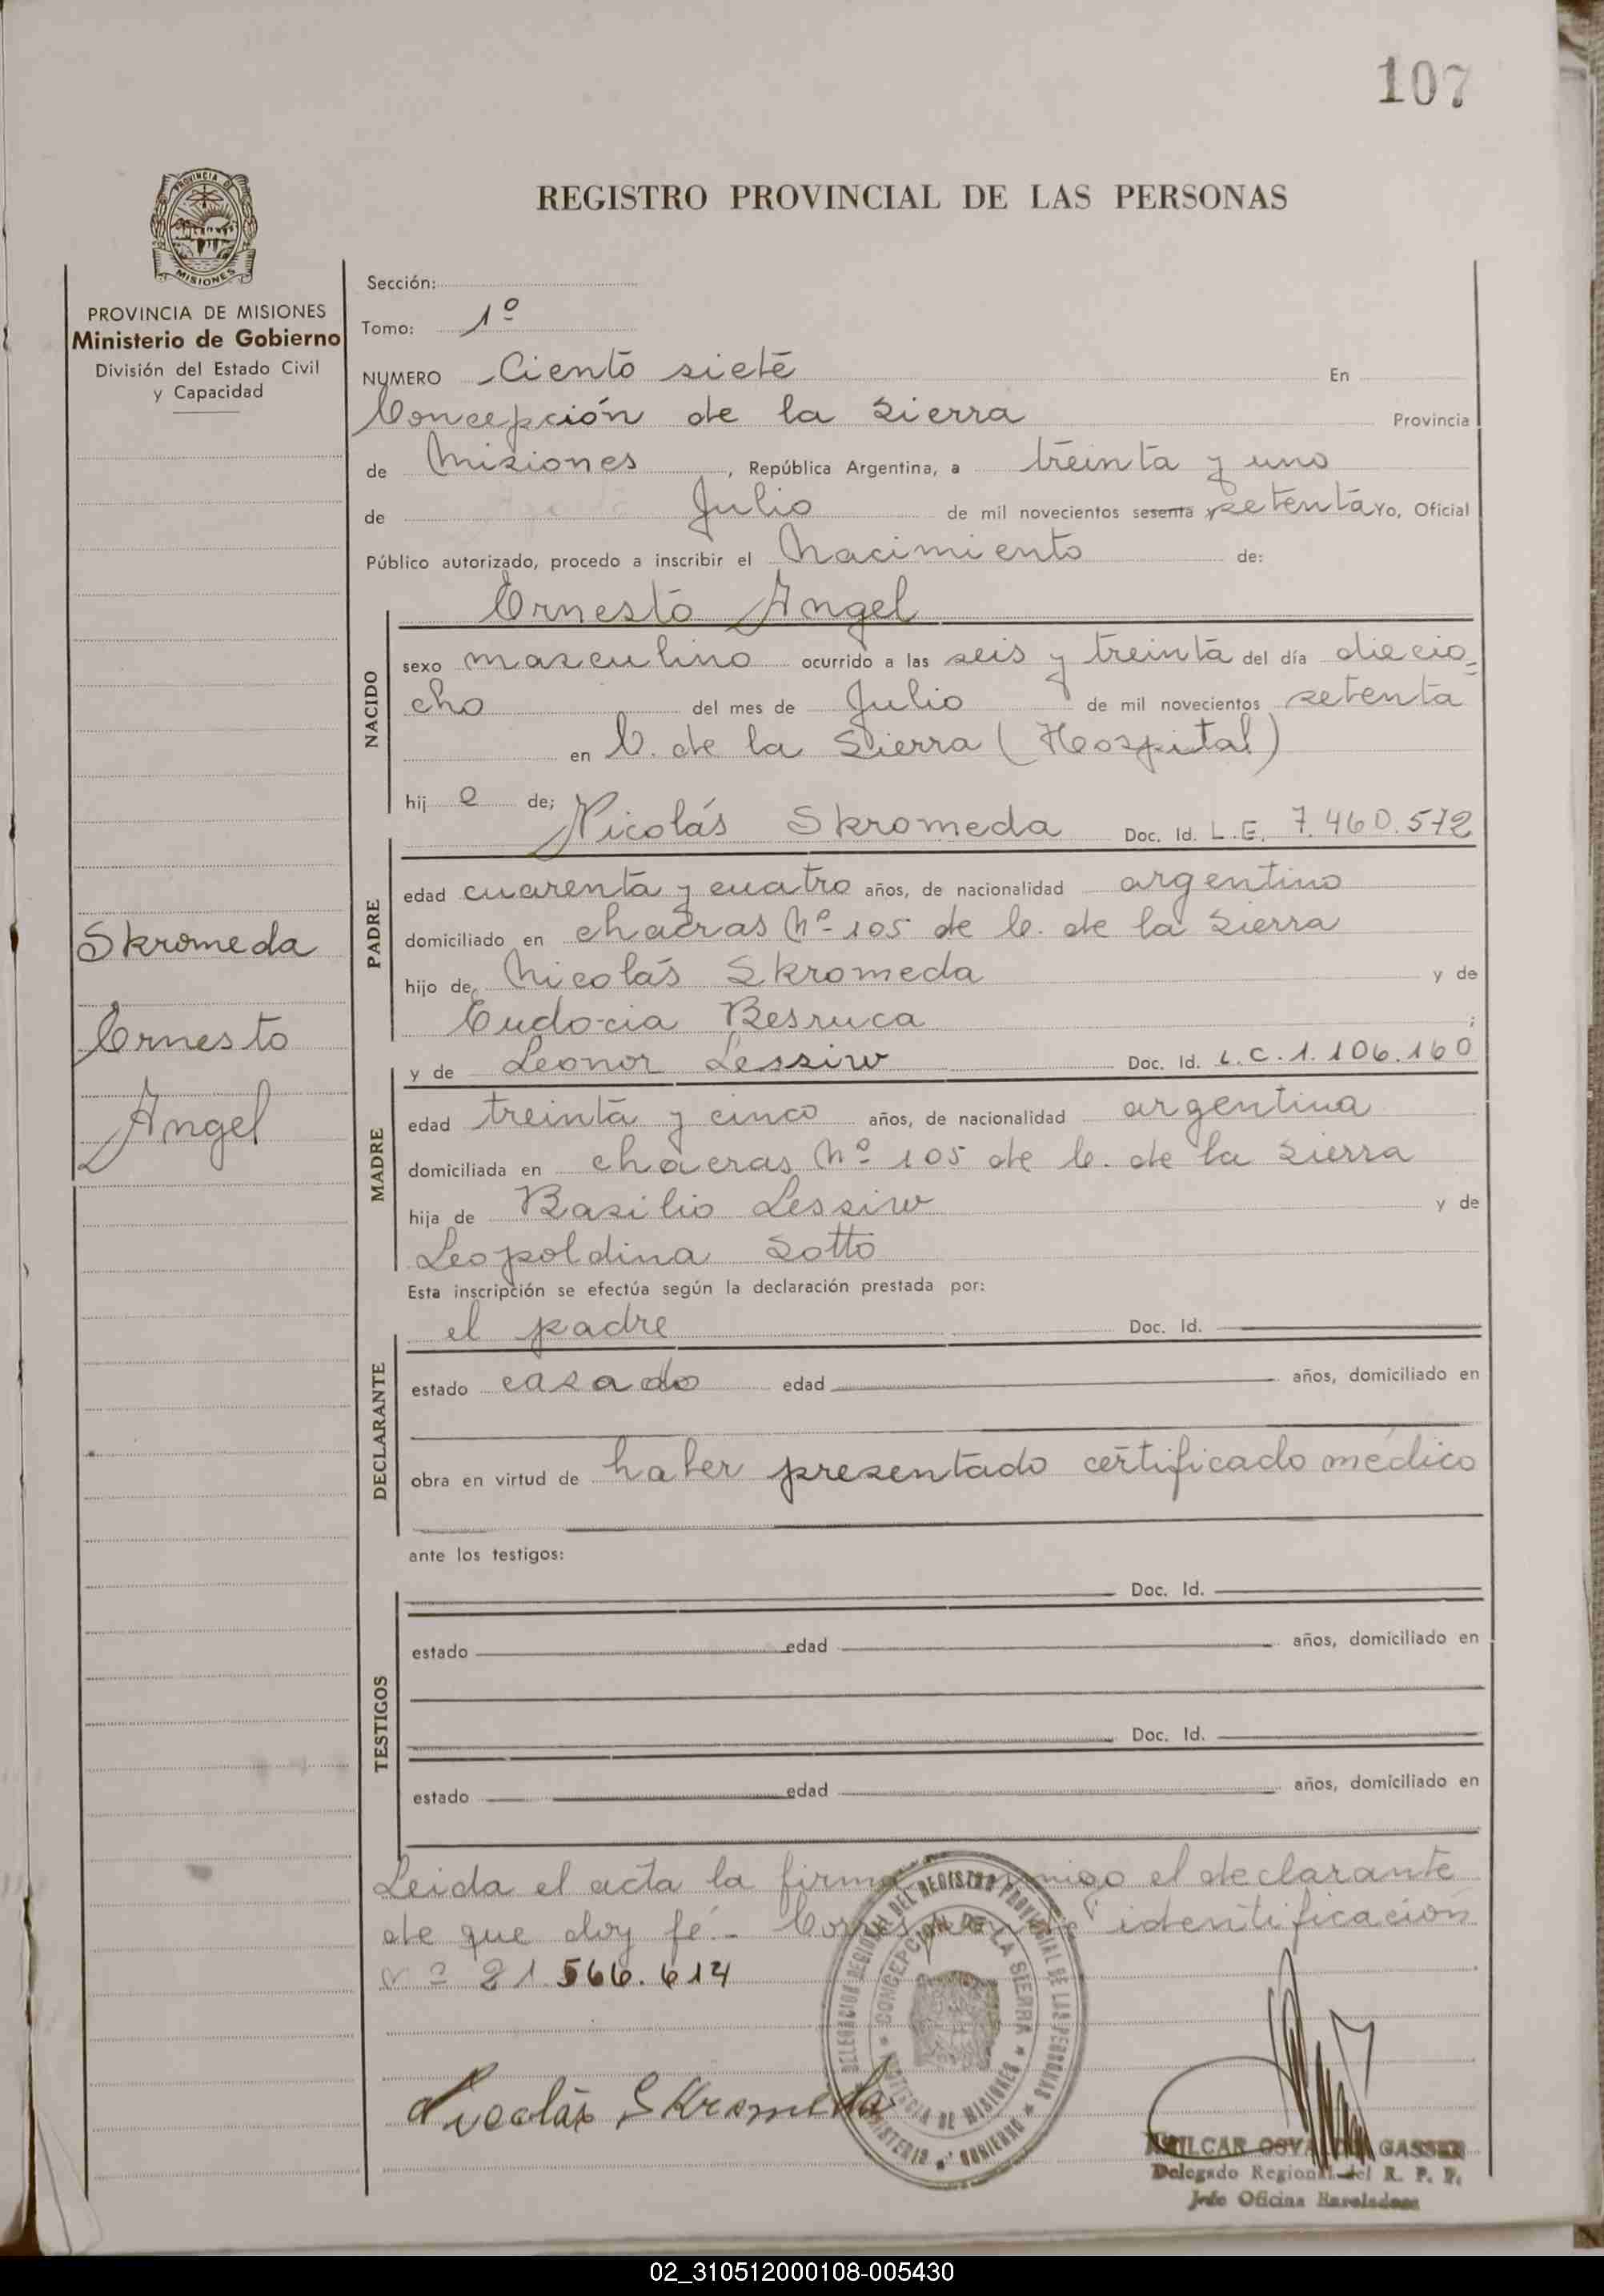 107
PROVINCIA DE
MISIONES
PROVINCIA DE MISIONES
Ministerio de Gobierno
División del Estado Civil
y Capacidad
Skromeda
Ernesto
Angel
REGISTRO PROVINCIAL DE LAS PERSONAS
Sección:
Tomo: 1º
NUMERO Ciento siete En
Concepción de la Sierra Provincia
de Misiones, República Argentina, a treinta y uno
de Julio de mil novecientos sesenta y setenta Yo, Oficial
Público autorizado, procedo a inscribir el Nacimiento de:
Ernesto Angel
NACIDO
sexo masculino ocurrido a las seis y treinta del día diecio=
cho del mes de Julio de mil novecientos setenta
en C. de la Sierra (Hospital)
hij o de;
Nicolás Skromeda Doc. Id. L.E. 7.460.572
PADRE
edad cuarenta y cuatro años, de nacionalidad argentino
domiciliado en chacras Nº 105 de C. de la Sierra
hijo de Nicolás Skromeda y de
Eudocia Besruca ;
y de Leonor Lessiw Doc. Id. L.C. 1.106.160
MADRE
edad treinta y cinco años, de nacionalidad argentina
domiciliada en chacras Nº 105 de C. de la Sierra
hija de Basilio Lessiw y de
Leopoldina Sotto
Esta inscripción se efectúa según la declaración prestada por:
el padre Doc. Id.
DECLARANTE
estado casado edad años, domiciliado en
obra en virtud de haber presentado certificado médico
ante los testigos:
Doc. Id.
TESTIGOS
estado edad años, domiciliado en
Doc. Id.
estado edad años, domiciliado en
Leida el acta la firma conmigo el declarante
de que doy fé.- Corresponde identificación
Nº 21.566.614
DELEGACION REGIONAL DEL REGISTRO PROVINCIAL DE LAS PERSONAS
MINISTERIO DE GOBIERNO
CONCEPCION DE LA SIERRA
PROVINCIA DE MISIONES
Nicolás Skromeda
GASSER
Delegado Regional del R. P. P.
Jefe Oficina
02_310512000108-005430